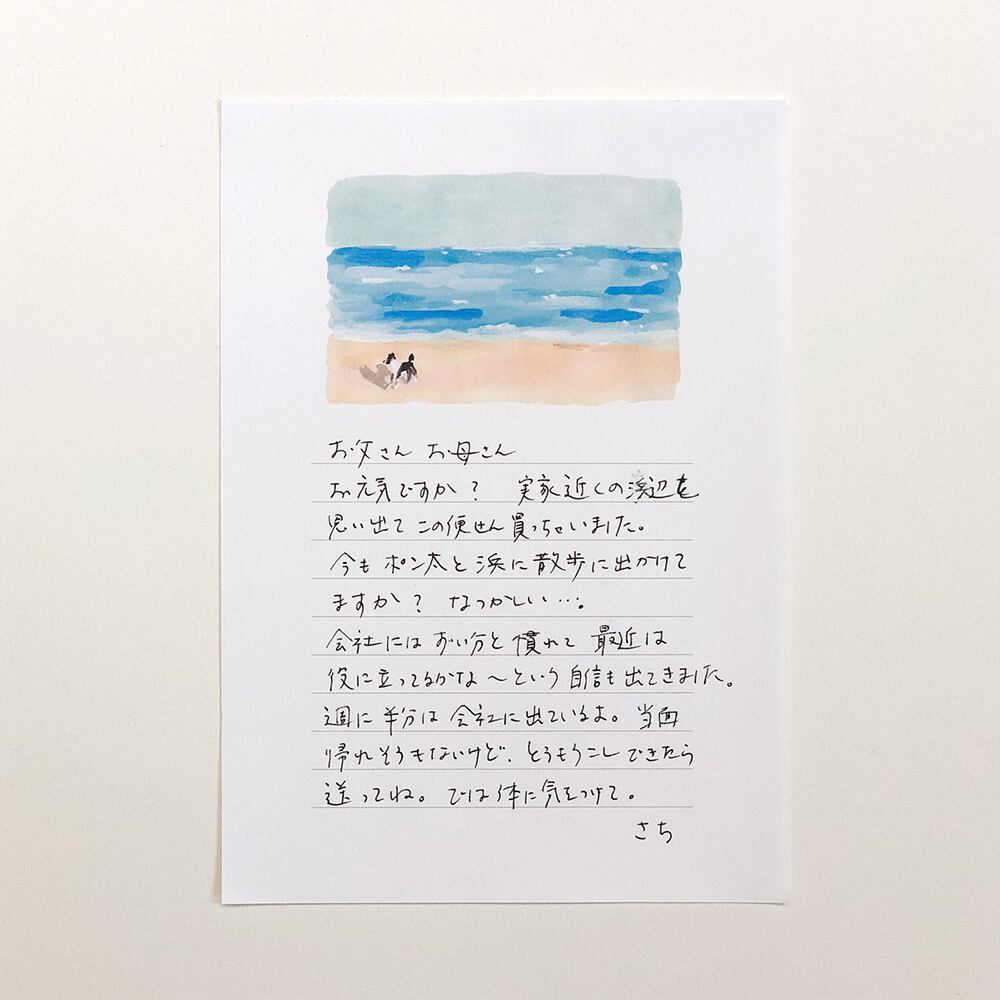 お父さん お母さん
お元気ですか? 実家近くの浜辺を
思い出て この便せん買っちゃいました。
今も ポン太と 浜に散歩に出かけて
ますか? なつかしい…。
会社には ずい分と 慣れて 最近は
役に立ってるかな〜という 自信も出てきました。
週に 半分は 会社に出ているよ。 当面
帰れそうもないけど、とうもろこし できたら
送ってね。 では 体に気をつけて。
さち